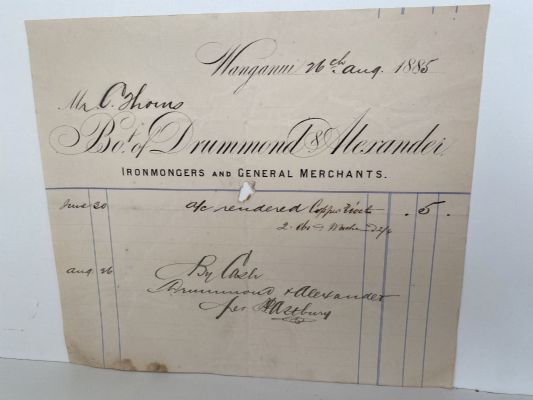 Wanganui 26th Aug. 1885
Mr C. Thoms
Bot. of Drummond & Alexander.
IRONMONGERS AND GENERAL MERCHANTS.
June 20 a/c rendered Copper . 5 .
2
Aug 26 By Cash
Drummond & Alexander
per